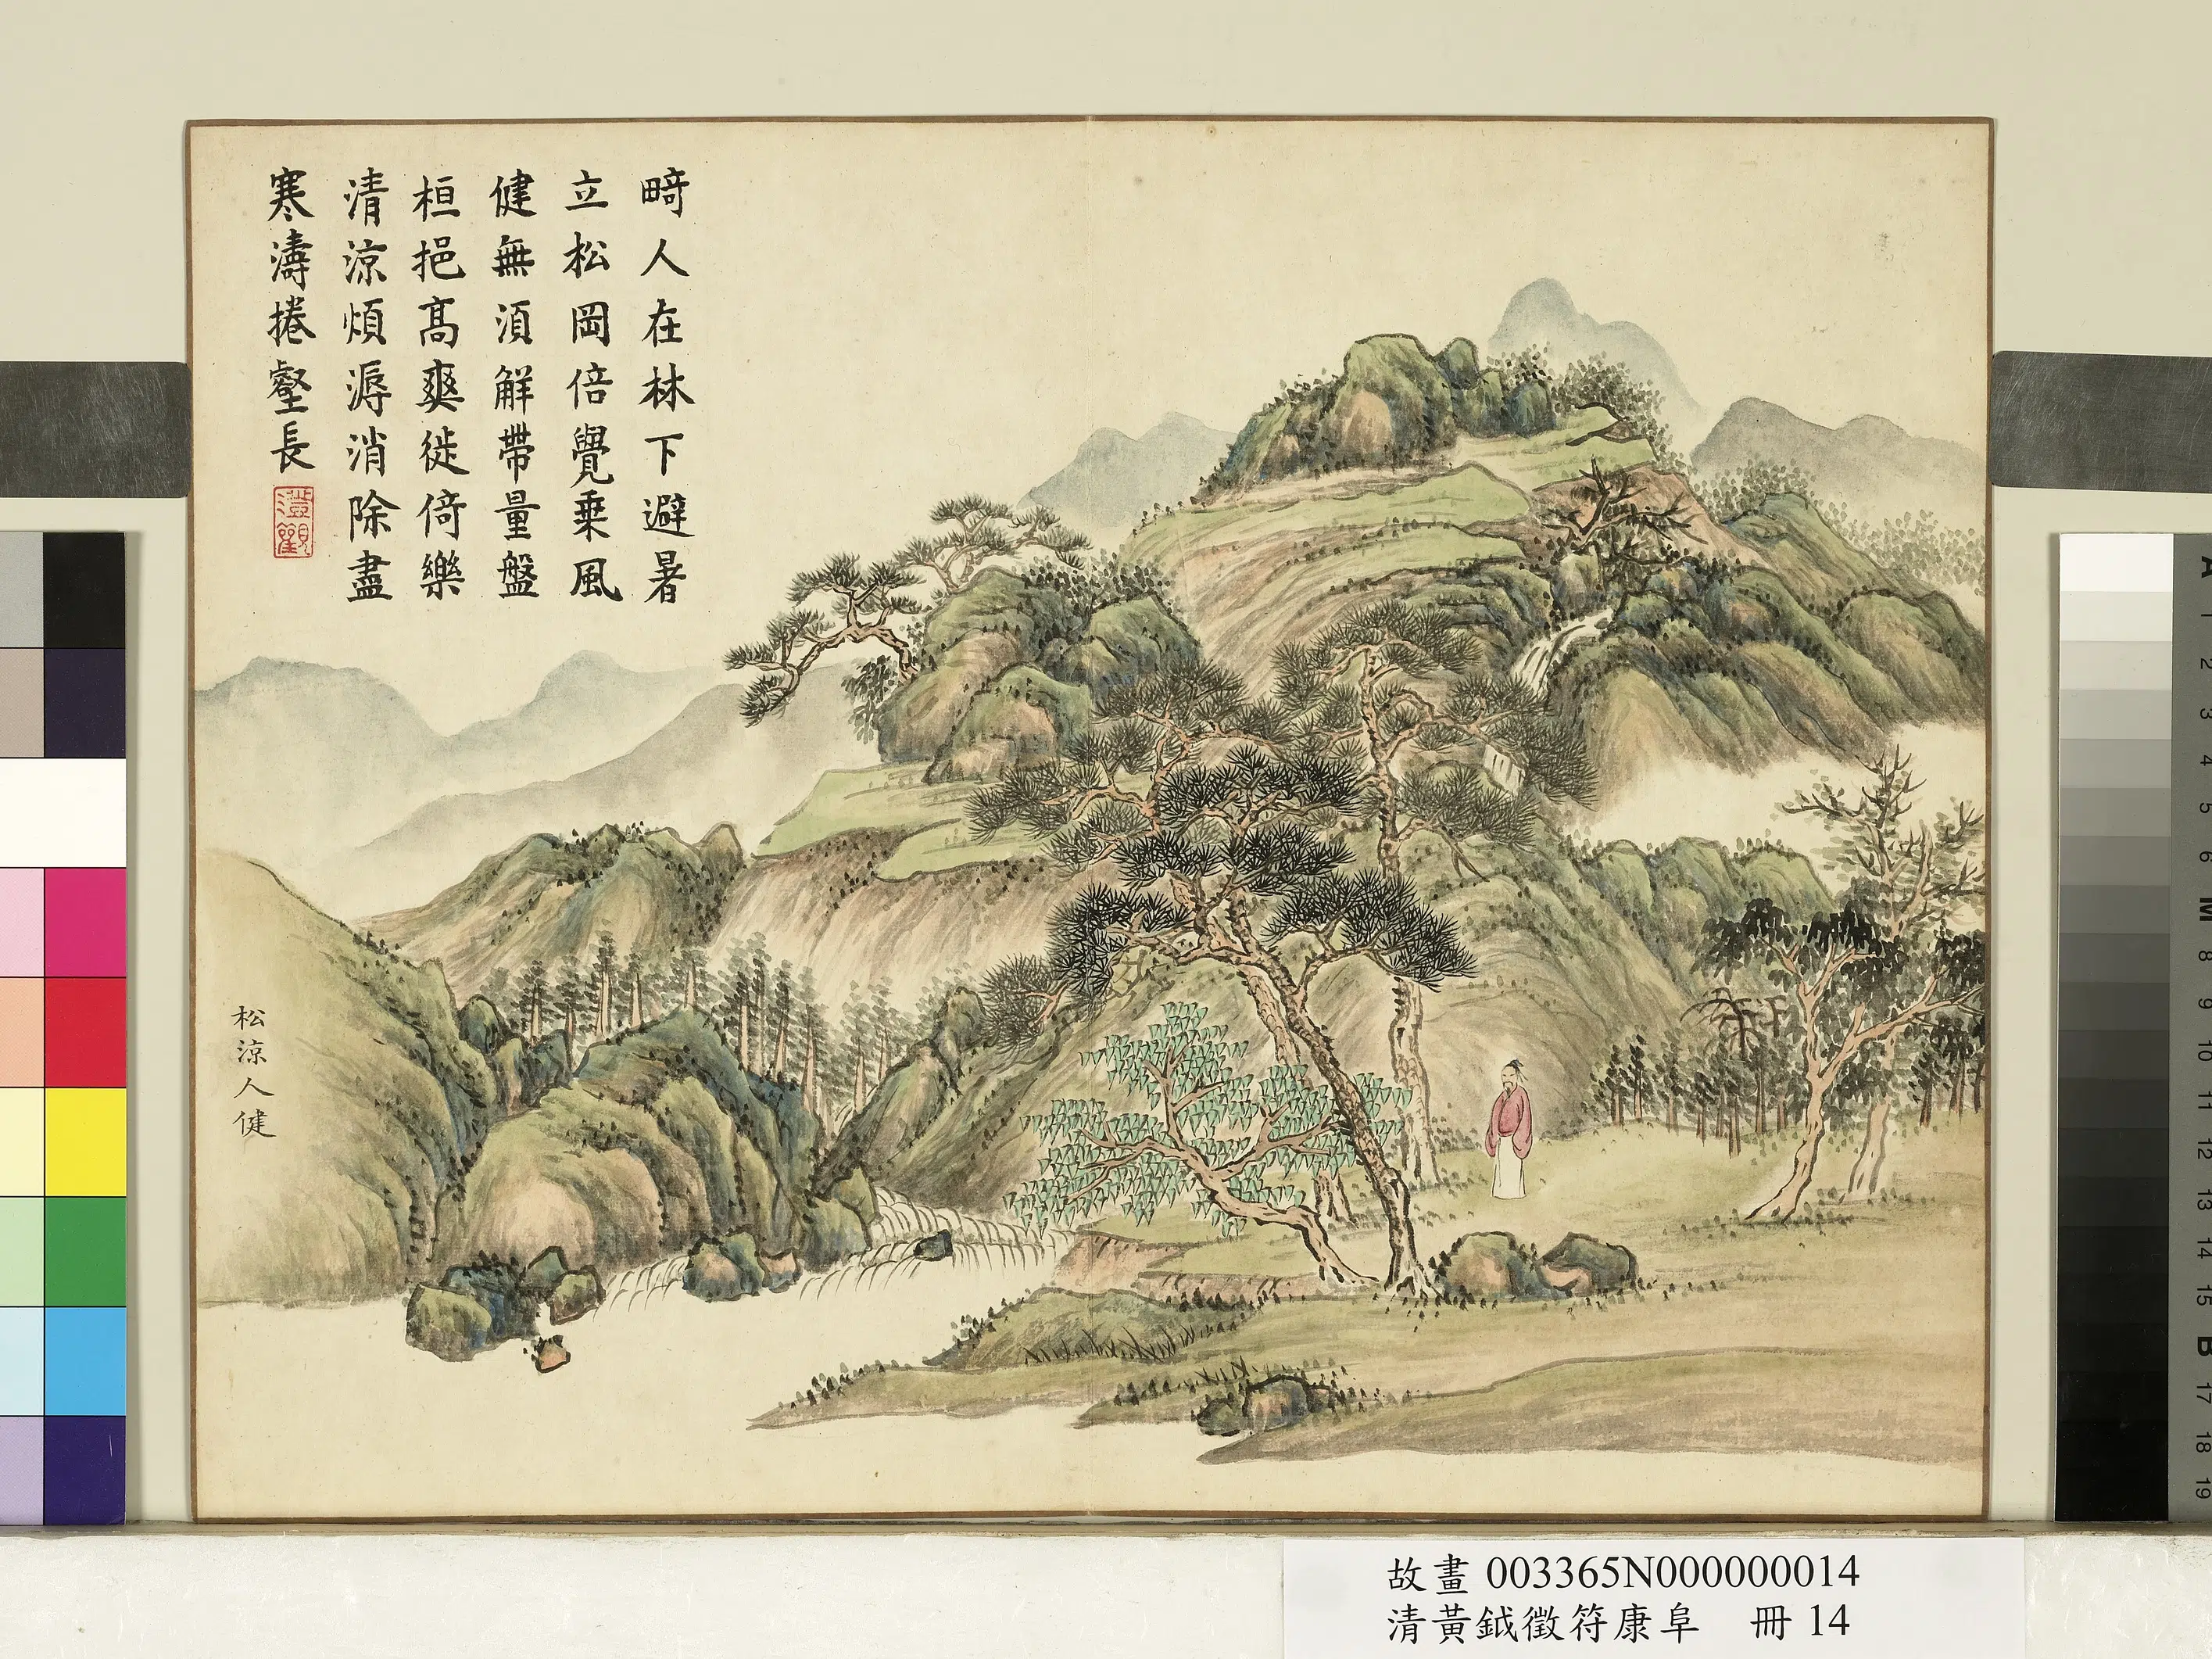 畸人在林下避暑
立松岡倍覺乗風
健無湏解帶量盤
桓挹髙爽徙倚樂
清涼煩溽消除盡
寒濤捲壑長
澄觀
松涼人健
故畫 003365N000000014
清黃鉞徵符康阜 冊 14
A
1
2
3
4
5
6
M
8
9
10
11
12
13
14
15
B
17
18
19